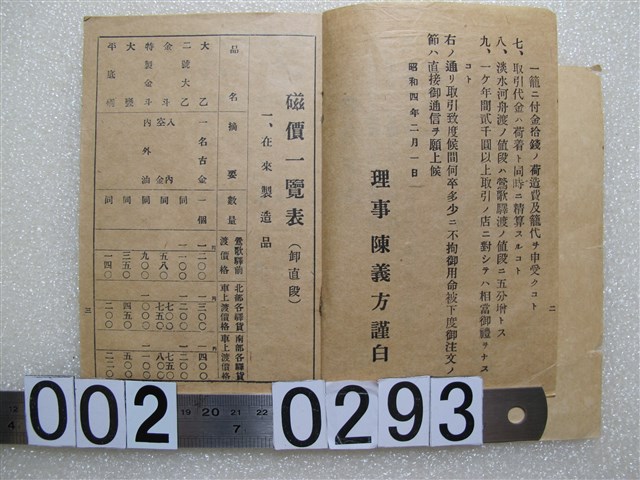 一籠ニ付金拾錢ノ荷造費及籠代ヲ申受クコト
七、取引代金ハ荷着ト同時ニ精算スルコト
八、淡水河舟渡ノ値段ハ鶯歌驛渡ノ値段ニ五分增トス
九、一ケ年間貳千圓以上取引ノ店ニ對シテハ相當御禮ヲナスコト
右ノ通リ取引致度候間何卒多少ニ不拘御用命被下度御注文ノ
節ハ直接御通信ヲ願上候
昭和四年二月一日
理事 陳義方謹白
二
磁價一覽表(卸直段)
一、在來製造品
品名 摘要 數量 鶯歌驛前渡價格 北部各驛貨車上渡價格 南部各驛貨車上渡價格
大乙 一名古金 一個 一二〇〇 一三〇〇 一四〇〇
二號大乙 同 一一〇〇
金斗 入金 同 五八〇 七〇〇 七五〇
特製金斗 內外油 同 九〇〇 一〇〇〇 一一〇〇
同 三五〇 四五〇 五〇〇
平底 同 一四〇 二〇〇
三
002 0293
19 20 21 22
7